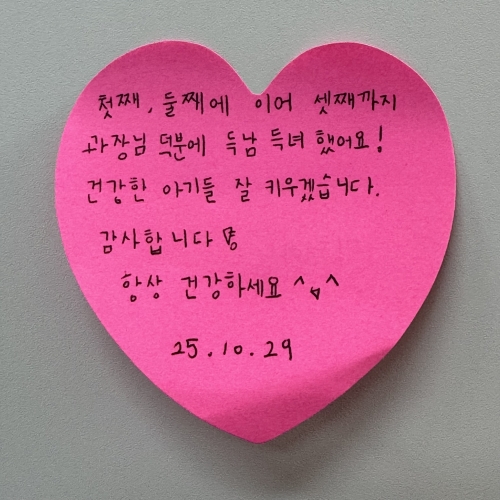 첫째, 둘째에 이어 셋째까지
과장님 덕분에 득남 득녀 했어요!
건강한 아기들 잘 키우겠습니다.
감사합니다
항상 건강하세요 ^^
25.10.29